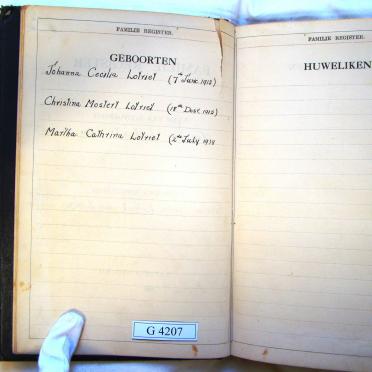 FAMILIE REGISTER.
GEBOORTEN
Johanna Cecilia Lotriet (7th June 1912)
Christina Mostert Lotriet (18th 1915)
Martha Cathrina Lotriet (2nd July 1918
G 4207
FAMILIE REGISTER.
HUWELIKEN